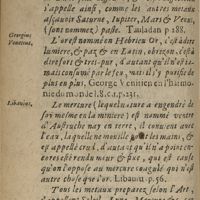 s'appelle ainsi, comme les autres metaux
asçauoir Saturne, Iupiter, Mars & Venus,
(sont nommez) passe. Tauladan p. 188.
Georgius
Venetius.
L'or est nommé en Hebrieu Or, c'est à dire
lumiere, & paz, & en Latin, obrizon, c'est à
dire fort & tres-pur, d'autant qu'il n'est ia-
mais consumé par le feu, mais il y purifie de
plus en plus. George Venitien en l'harmo-
nie du monde l. 8. c. 1. p. 131.
Libauius.
Le mercure (lequel
soy mesme en la miniere) est nommé verre
d'Austruche nay en terre, il conuient auec
l'eau, laquelle ne mouille point les mains, &
est appellé crud, d'autant qu'il n'a point en-
cores esté rendu meur & fixe, qui est cause
qu'on l'appose au mercure coagulé qui n'est
autre chose que l'or. Libaui. p. 56.
Tous les metaux preparez selon l'Art,